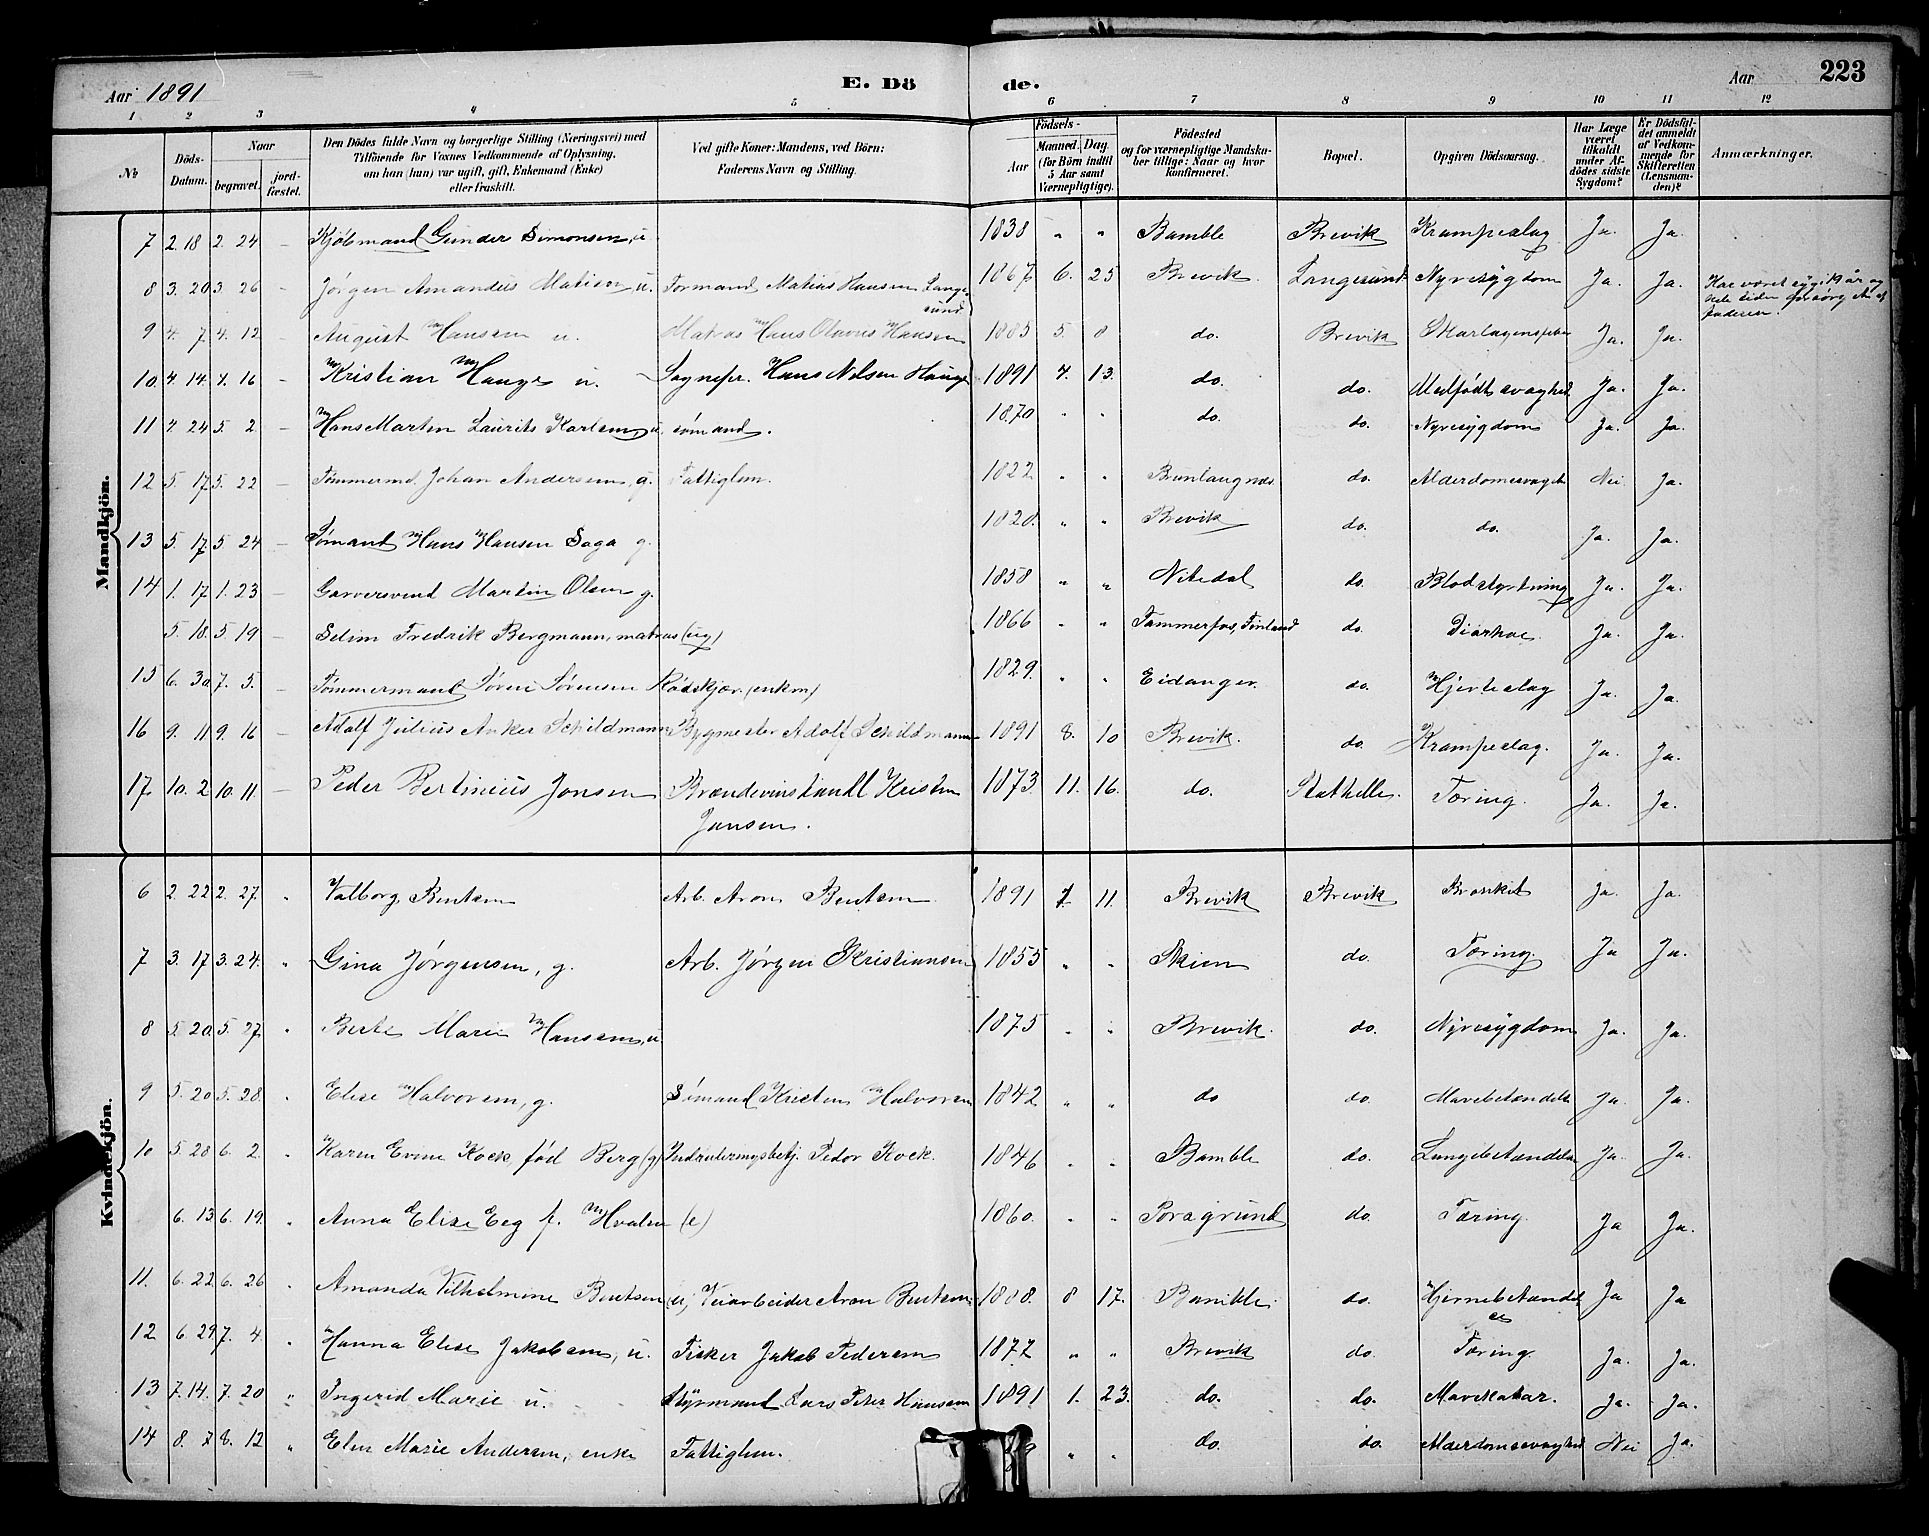 Aar 1891 E. Dö de. Aar 223
1 2 3 4 5 6 7 8 9 10 11 12
No
Döds-Datum.
Naar
begravet.
jord-fæstet.
Den Dödes fulde Navn og borgerlige Stilling (Næringsvei) med
Tilföiende for Voxnes Vedkommende af Oplysning,
om han (hun) var ugift, gift, Enkemand (Enke)
eller fraskilt.
Ved gifte Koner: Mandens, ved Börn:
Faderens Navn og Stilling.
Födsels-
Aar
Maaned. Dag.
(for Börn indtil
5 Aar samt
Værnepligtige).
Födested
og for værnepligtige Mandska-
ber tillige: Naar og hvor
konfirmeret.
Bopæl.
Opgiven Dödsaarsag.
Har Læge
været
tilkaldt
under Af-
dödes sidste
Sygdom?
Er Dödsfal-
det anmeldt
af Vedkom-
mende for
Skifteretten
(Lensman-
den)?
Anmærkninger.
Mandkjön.
7 2. 18 2. 24 – Kjöbmand Gunder Simonsen, u. 1838 " " Bamble Brevik Krampeslag Ja. Ja.
8 3. 20 3. 26 – Jörgen Amandus Matisen, u. Formand Matias Hansen Lange-
sund 1867 6. 25 Brevik. Langesund Nyresygdom Ja. Ja. Har været syg i år og
hele tiden forsørget af
faderen.
9 4. 7. 4. 12 – August Hansen u. Matros Hans Olavus Hansen 1885 5. 8 do. Brevik Skarlagensfeber Ja. Ja.
10 4. 14. 4. 16 – Kristian Hauge u. Sognepr. Hans Nilsen Hauge 1891 4. 13. do. do. Medfødt svaghed Ja. Ja.
11 4. 24 5. 2 – Hans Martin Laurits Karlsen, u. sømand. 1870 " " do. do. Nyresygdom Ja. Ja.
12 5. 17 5. 22 – Tømmermd. Johan Andersen, g. Fattiglem. 1822 " " Brunlangnæs do. Alderdomssvaghed Nei Ja.
13 5. 17. 5. 24 – Sømand Hans Hansen Saga g. 1820. " " Brevik do. do. Ja. Ja.
14 1. 17 1. 23 – Garversvend Martin Olsen g. 1858 " " Nitedal do. Blodstyrtning Ja. Ja.
5. 18. 5. 19 – Selim Fredrik Bergmann, matros (ug) 1866 " " Tammerfos, Finland do. Diarhoe. Ja. Ja.
15 6. 30. 7. 5. – Tømmermand Søren Sørensen Rødskjær. (enkm) 1829. " " Eidanger. do. Hjerteslag Ja. Ja.
16 9. 11. 9. 16 – Adolf Julius Anker Schildmann Bygmester Adolf Schildmann 1891 8. 10 Brevik. do. Krampeslag. Ja. Ja.
17 10. 2 10. 11. – Peder Bertinius Jansen Brændevinshandl. Kristen
Jansen. 1873 11. 16. do. Stathelle. Tæring. Ja. Ja.
Kvindekjön.
6 2. 22 2. 27. " Valborg Bentsen Arb. Aron Bentsen 1891 11. Brevik Brevik Bronkit Ja. Ja.
7 3. 17 3. 24. " Gina Jørgensen, g. Arb. Jørgen Kristiansen 1855 " " Skien do. Tæring Ja Ja.
8 5. 20. 5. 27. " Berte Marie Hansen, u. 1875 " " Brevik. do. Nyresygdom Ja. Ja.
9 5. 20 5. 28. " Elise Halvorsen, g. Sømand Kristen Halvorsen 1842 " " do do. Mavebetændelse Ja. Ja.
10 5. 28 6. 2. " Karen Evine Kock, fød Berg (g) Indrulleringsbetj. Peder Kock. 1846 " " Bamble do. Lungebetændelse Ja. Ja.
6. 13 6. 19. " Anna Elise Eeg f. Hvalen (e) 1860. " " Porsgrund do. Tæring. Ja Ja.
11. 6. 22. 6. 26 " Amanda Vilhelmine Bentsen (u) Veiarbeider Aron Bentsen 1888. 8 17. Bamble do. Hjernebetændel-
se Ja Ja
12 6. 29 7. 4. " Hanna Elise Jakobsen, u. Fisker Jakob Pedersen 1877 " " Brevik do. Tæring. Ja. Ja.
13 7. 14. 7. 20 " Ingerid Marie u. Styrmand Lars Peter Hansen 1891 1. 23. do. do. Mavekatar. Ja. Ja.
14 8. 7 8. 12 " Elen Marie Andersen, enke Fattiglem. " " do. do. Alderdomssvaghed Nei Ja.